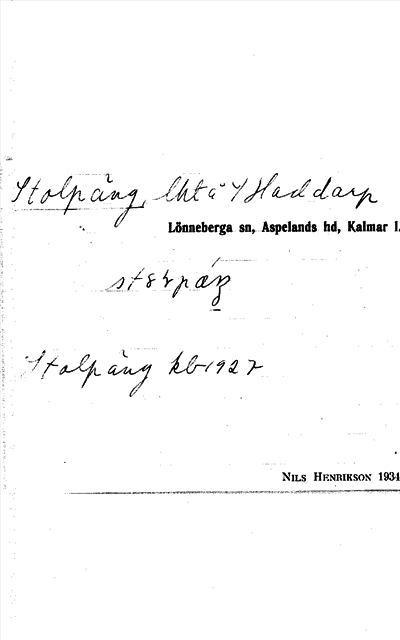 Stolpäng, lht å 1/4 Haddarp
Lönneberga sn, Aspelands hd, Kalmar l.
Stolpäng kb 1927
NILS HENRIKSON 1934